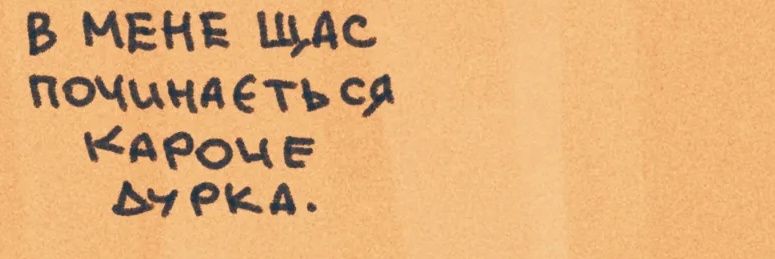 В МЕНЕ ЩАС
ПОЧИНАЄТЬСЯ
КАРОЧЕ
ДУРКА.